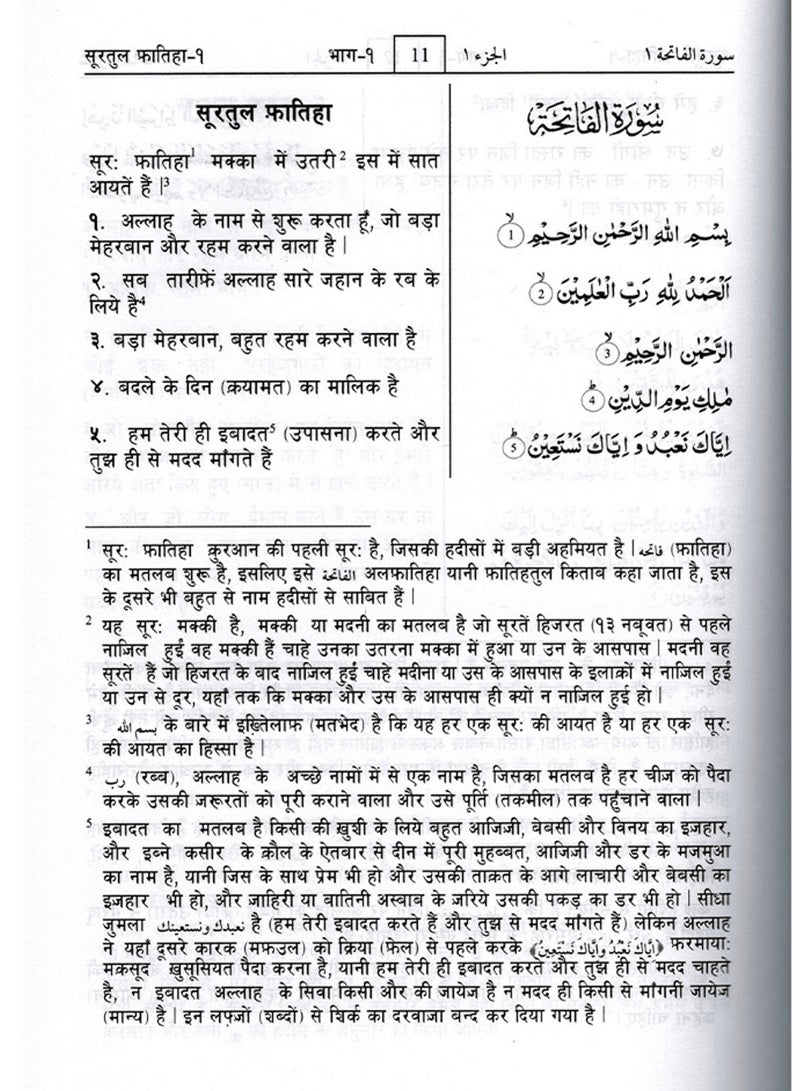 सूरतुल फ़ातिहा-१ भाग-१ 11 الجزء ١ سورة الفاتحة ١
सूरतुल फ़ातिहा
सूर: फातिहा¹ मक्का में उतरी² इस में सात
आयतें हैं |³
१. अल्लाह के नाम से शुरू करता हूँ, जो बड़ा
मेहरबान और रहम करने वाला है |
२. सब तारीफें अल्लाह सारे जहान के रब के
लिये है⁴
३. बड़ा मेहरबान, बहुत रहम करने वाला है
४. बदले के दिन (क़यामत) का मालिक है
५. हम तेरी ही इबादत⁵ (उपासना) करते और
तुझ ही से मदद मांगते हैं
سُوْرَةُ الْفَاتِحَةِ
بِسْمِ اللهِ الرَّحْمٰنِ الرَّحِيْمِ ①
اَلْحَمْدُ لِلّٰهِ رَبِّ الْعٰلَمِيْنَ ②
الرَّحْمٰنِ الرَّحِيْمِ ③
مٰلِكِ يَوْمِ الدِّيْنِ ④
اِيَّاكَ نَعْبُدُ وَ اِيَّاكَ نَسْتَعِيْنُ ⑤
¹ सूर: फातिहा क़ुरआन की पहली सूर: है, जिसकी हदीसों में बड़ी अहमियत है | فاتحه (फातिहा)
का मतलब शुरू है, इसलिए इसे الفاتحة अलफातिहा यानी फातिहतुल किताब कहा जाता है, इस
के दूसरे भी बहुत से नाम हदीसों से साबित हैं |
² यह सूर: मक्की है, मक्की या मदनी का मतलब है जो सूरतें हिजरत (१३ नबूवत) से पहले
नाजिल हुईं वह मक्की हैं चाहे उनका उतरना मक्का में हुआ या उन के आसपास | मदनी वह
सूरतें हैं जो हिजरत के बाद नाजिल हुईं चाहे मदीना या उस के आसपास के इलाक़ों में नाजिल हुईं
या उन से दूर, यहाँ तक कि मक्का और उस के आसपास ही क्यों न नाजिल हुई हो |
³ بسم الله के बारे में इख़्तेलाफ़ (मतभेद) है कि यह हर एक सूर: की आयत है या हर एक सूर:
की आयत का हिस्सा है |
⁴ رب (रब्ब), अल्लाह के अच्छे नामों में से एक नाम है, जिसका मतलब है हर चीज को पैदा
करके उसकी जरूरतों को पूरी कराने वाला और उसे पूर्ति (तकमील) तक पहुंचाने वाला |
⁵ इबादत का मतलब है किसी की ख़ुशी के लिये बहुत आजिजी, बेबसी और विनय का इजहार,
और इब्ने कसीर के क़ौल के ऐतबार से दीन में पूरी मुहब्बत, आजिजी और डर के मजमुआ
का नाम है, यानी जिस के साथ प्रेम भी हो और उसकी ताक़त के आगे लाचारी और बेबसी का
इजहार भी हो, और जाहिरी या बातिनी अस्बाब के जरिये उसकी पकड़ का डर भी हो | सीधा
जुमला نعبدك ونستعينك है (हम तेरी इबादत करते हैं और तुझ से मदद मांगते हैं) लेकिन अल्लाह
ने यहाँ दूसरे कारक (मफउल) को क्रिया (फेल) से पहले करके ﴿اِيَّاكَ نَعْبُدُ وَاِيَّاكَ نَسْتَعِيْنُ﴾ फरमाया:
मक़सूद ख़ुसूसियत पैदा करना है, यानी हम तेरी ही इबादत करते और तुझ ही से मदद चाहते
है, न इबादत अल्लाह के सिवा किसी और की जायेज है न मदद ही किसी से मांगनीं जायेज
(मान्य) है | इन लफ़्जों (शब्दों) से शिर्क का दरवाजा बन्द कर दिया गया है |